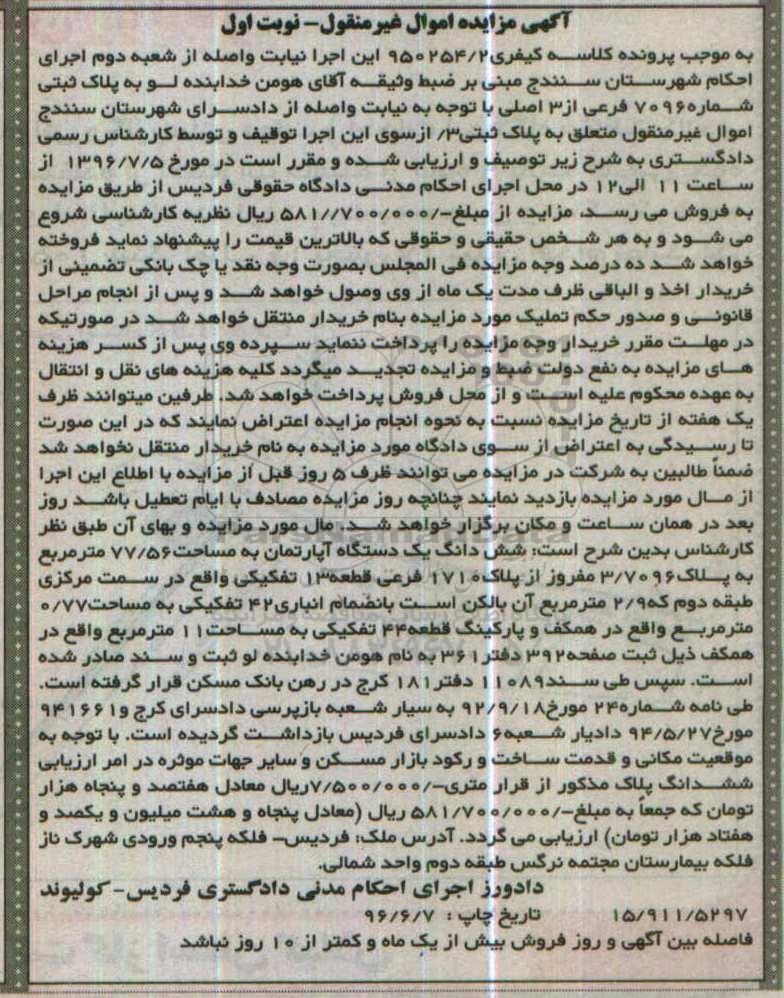 آگهی مزایده اموال غیرمنقول- نوبت اول
به موجب پرونده کلاسه کیفری۹۵۰۲۵۴/۲ این اجرا نیابت واصله از شعبه دوم اجرای
احکام شهرستان سنندج مبنی بر ضبط وثیقه آقای هومن خدابنده لو به پلاک ثبتی
شماره۷۰۹۶ فرعی از۳ اصلی با توجه به نیابت واصله از دادسرای شهرستان سنندج
اموال غیرمنقول متعلق به پلاک ثبتی۳/ ازسوی این اجرا توقیف و توسط کارشناس رسمی
دادگستری به شرح زیر توصیف و ارزیابی شده و مقرر است در مورخ ۱۳۹۶/۷/۵ از
ساعت ۱۱ الی۱۲ در محل اجرای احکام مدنی دادگاه حقوقی فردیس از طریق مزایده
به فروش می رسد، مزایده از مبلغ-/۵۸۱//۷۰۰/۰۰۰ ریال نظریه کارشناسی شروع
می شود و به هر شخص حقیقی و حقوقی که بالاترین قیمت را پیشنهاد نماید فروخته
خواهد شد ده درصد وجه مزایده فی المجلس بصورت وجه نقد یا چک بانکی تضمینی از
خریدار اخذ و الباقی ظرف مدت یک ماه از وی وصول خواهد شد و پس از انجام مراحل
قانونی و صدور حکم تملیک مورد مزایده بنام خریدار منتقل خواهد شد در صورتیکه
در مهلت مقرر خریدار وجه مزایده را پرداخت ننماید سپرده وی پس از کسر هزینه
های مزایده به نفع دولت ضبط و مزایده تجدید میگردد کلیه هزینه های نقل و انتقال
به عهده محکوم علیه است و از محل فروش پرداخت خواهد شد. طرفین میتوانند ظرف
یک هفته از تاریخ مزایده نسبت به نحوه انجام مزایده اعتراض نمایند که در این صورت
تا رسیدگی به اعتراض از سوی دادگاه مورد مزایده به نام خریدار منتقل نخواهد شد
ضمناً طالبین به شرکت در مزایده می توانند ظرف ۵ روز قبل از مزایده با اطلاع این اجرا
از مال مورد مزایده بازدید نمایند چنانچه روز مزایده مصادف با ایام تعطیل باشد روز
بعد در همان ساعت و مکان برگزار خواهد شد. مال مورد مزایده و بهای آن طبق نظر
کارشناس بدین شرح است: شش دانگ یک دستگاه آپارتمان به مساحت۷۷/۵۶ مترمربع
به پلاک۳/۷۰۹۶ مفروز از پلاک۱۷۱۰ فرعی قطعه۱۳ تفکیکی واقع در سمت مرکزی
طبقه دوم که۲/۹ مترمربع آن بالکن است بانضمام انباری۴۲ تفکیکی به مساحت۰/۷۷
مترمربع واقع در همکف و پارکینگ قطعه۴۴ تفکیکی به مساحت۱۱ مترمربع واقع در
همکف ذیل ثبت صفحه۳۹۲ دفتر۳۶۱ به نام هومن خدابنده لو ثبت و سند صادر شده
است. سپس طی سند۱۱۰۸۹ دفتر۱۸۱ کرج در رهن بانک مسکن قرار گرفته است.
طی نامه شماره۲۴ مورخ۹۲/۹/۱۸ به سیار شعبه بازپرسی دادسرای کرج و۹۴۱۶۶۱
مورخ۹۴/۵/۲۷ دادیار شعبه۶ دادسرای فردیس بازداشت گردیده است. با توجه به
موقعیت مکانی و قدمت ساخت و رکود بازار مسکن و سایر جهات موثره در امر ارزیابی
ششدانگ پلاک مذکور از قرار متری-/۷/۵۰۰/۰۰۰ریال معادل هفتصد و پنجاه هزار
تومان که جمعاً به مبلغ-/۵۸۱/۷۰۰/۰۰۰ ریال (معادل پنجاه و هشت میلیون و یکصد و
هفتاد هزار تومان) ارزیابی می گردد. آدرس ملک: فردیس- فلکه پنجم ورودی شهرک ناز
فلکه بیمارستان مجتمه نرگس طبقه دوم واحد شمالی.
دادورز اجرای احکام مدنی دادگستری فردیس-کولیوند
۱۵/۹۱۱/۵۲۹۷ تاریخ چاپ : ۹۶/۶/۷
فاصله بین آگهی و روز فروش بیش از یک ماه و کمتر از ۱۰ روز نباشد
ParsNamadData